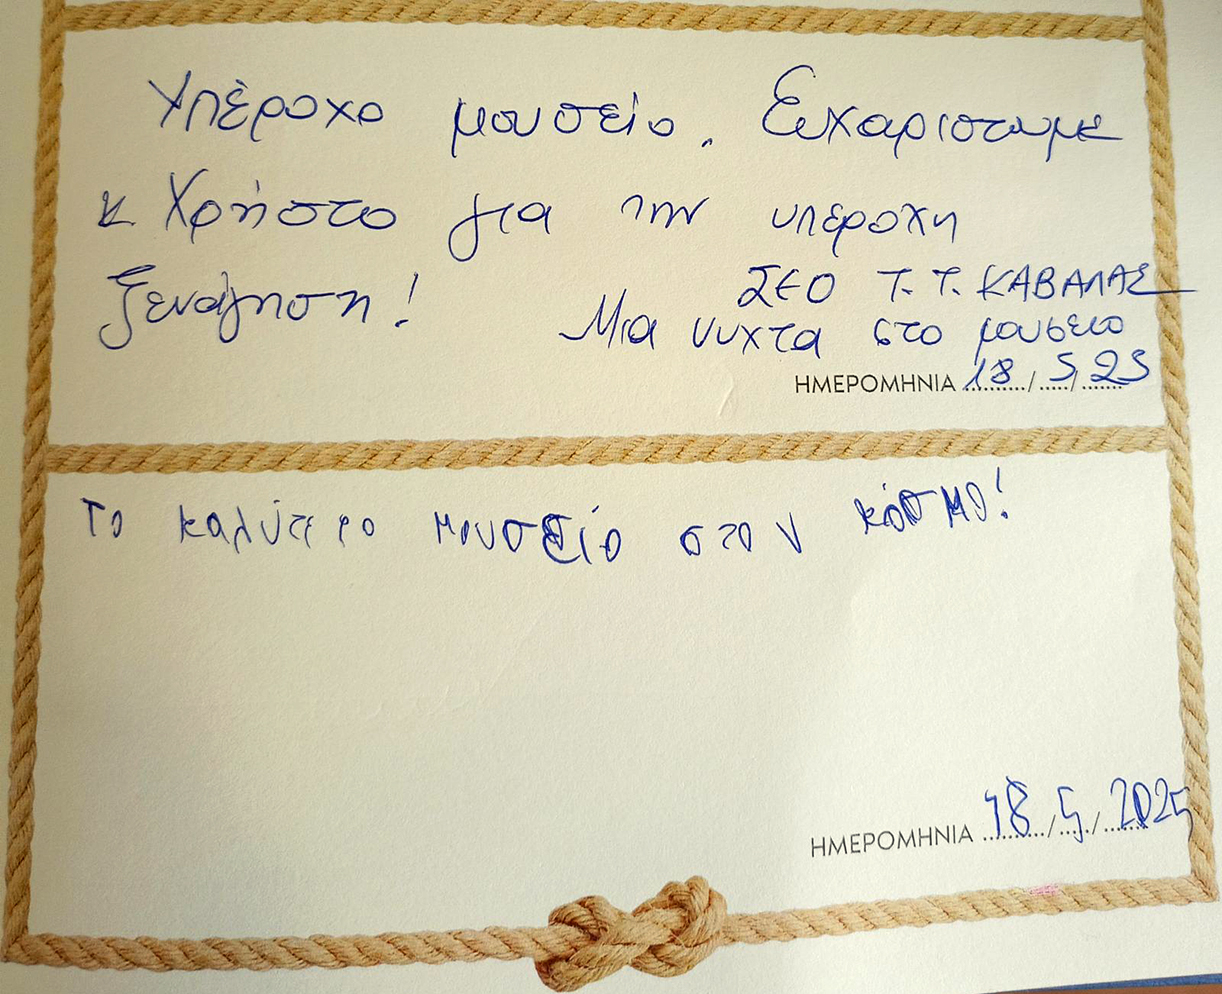 Υπέροχο μουσείο. Ευχαριστωμε
κ Χρήστο για την υπέροχη
ξενάγηση!
ΣΕΟ Τ.Τ. ΚΑΒΑΛΑΣ
Μια νυχτα στο μουσειο
ΗΜΕΡΟΜΗΝΙΑ 18/5/25
Το καλύτερο μουσείο στον κόσμο!
ΗΜΕΡΟΜΗΝΙΑ 18/5/2025